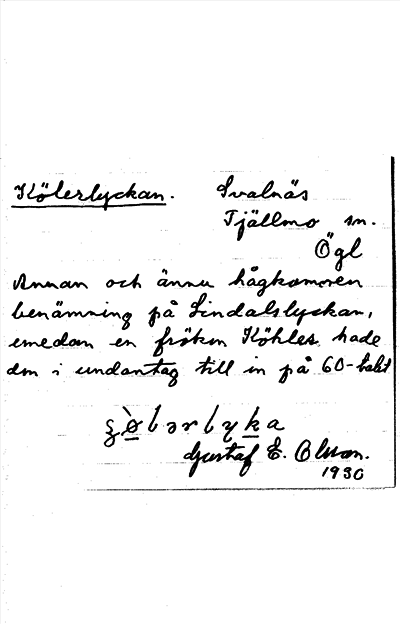 Kölerlyckan. Svalnäs
Tjällmo sn.
Ögl
Annan och ännu hågkommen
benämning på Lindalslyckan,
emedan en fröken Köhler hade
den i undantag till in på 60-talet
Gustaf E. Olsson.
1930